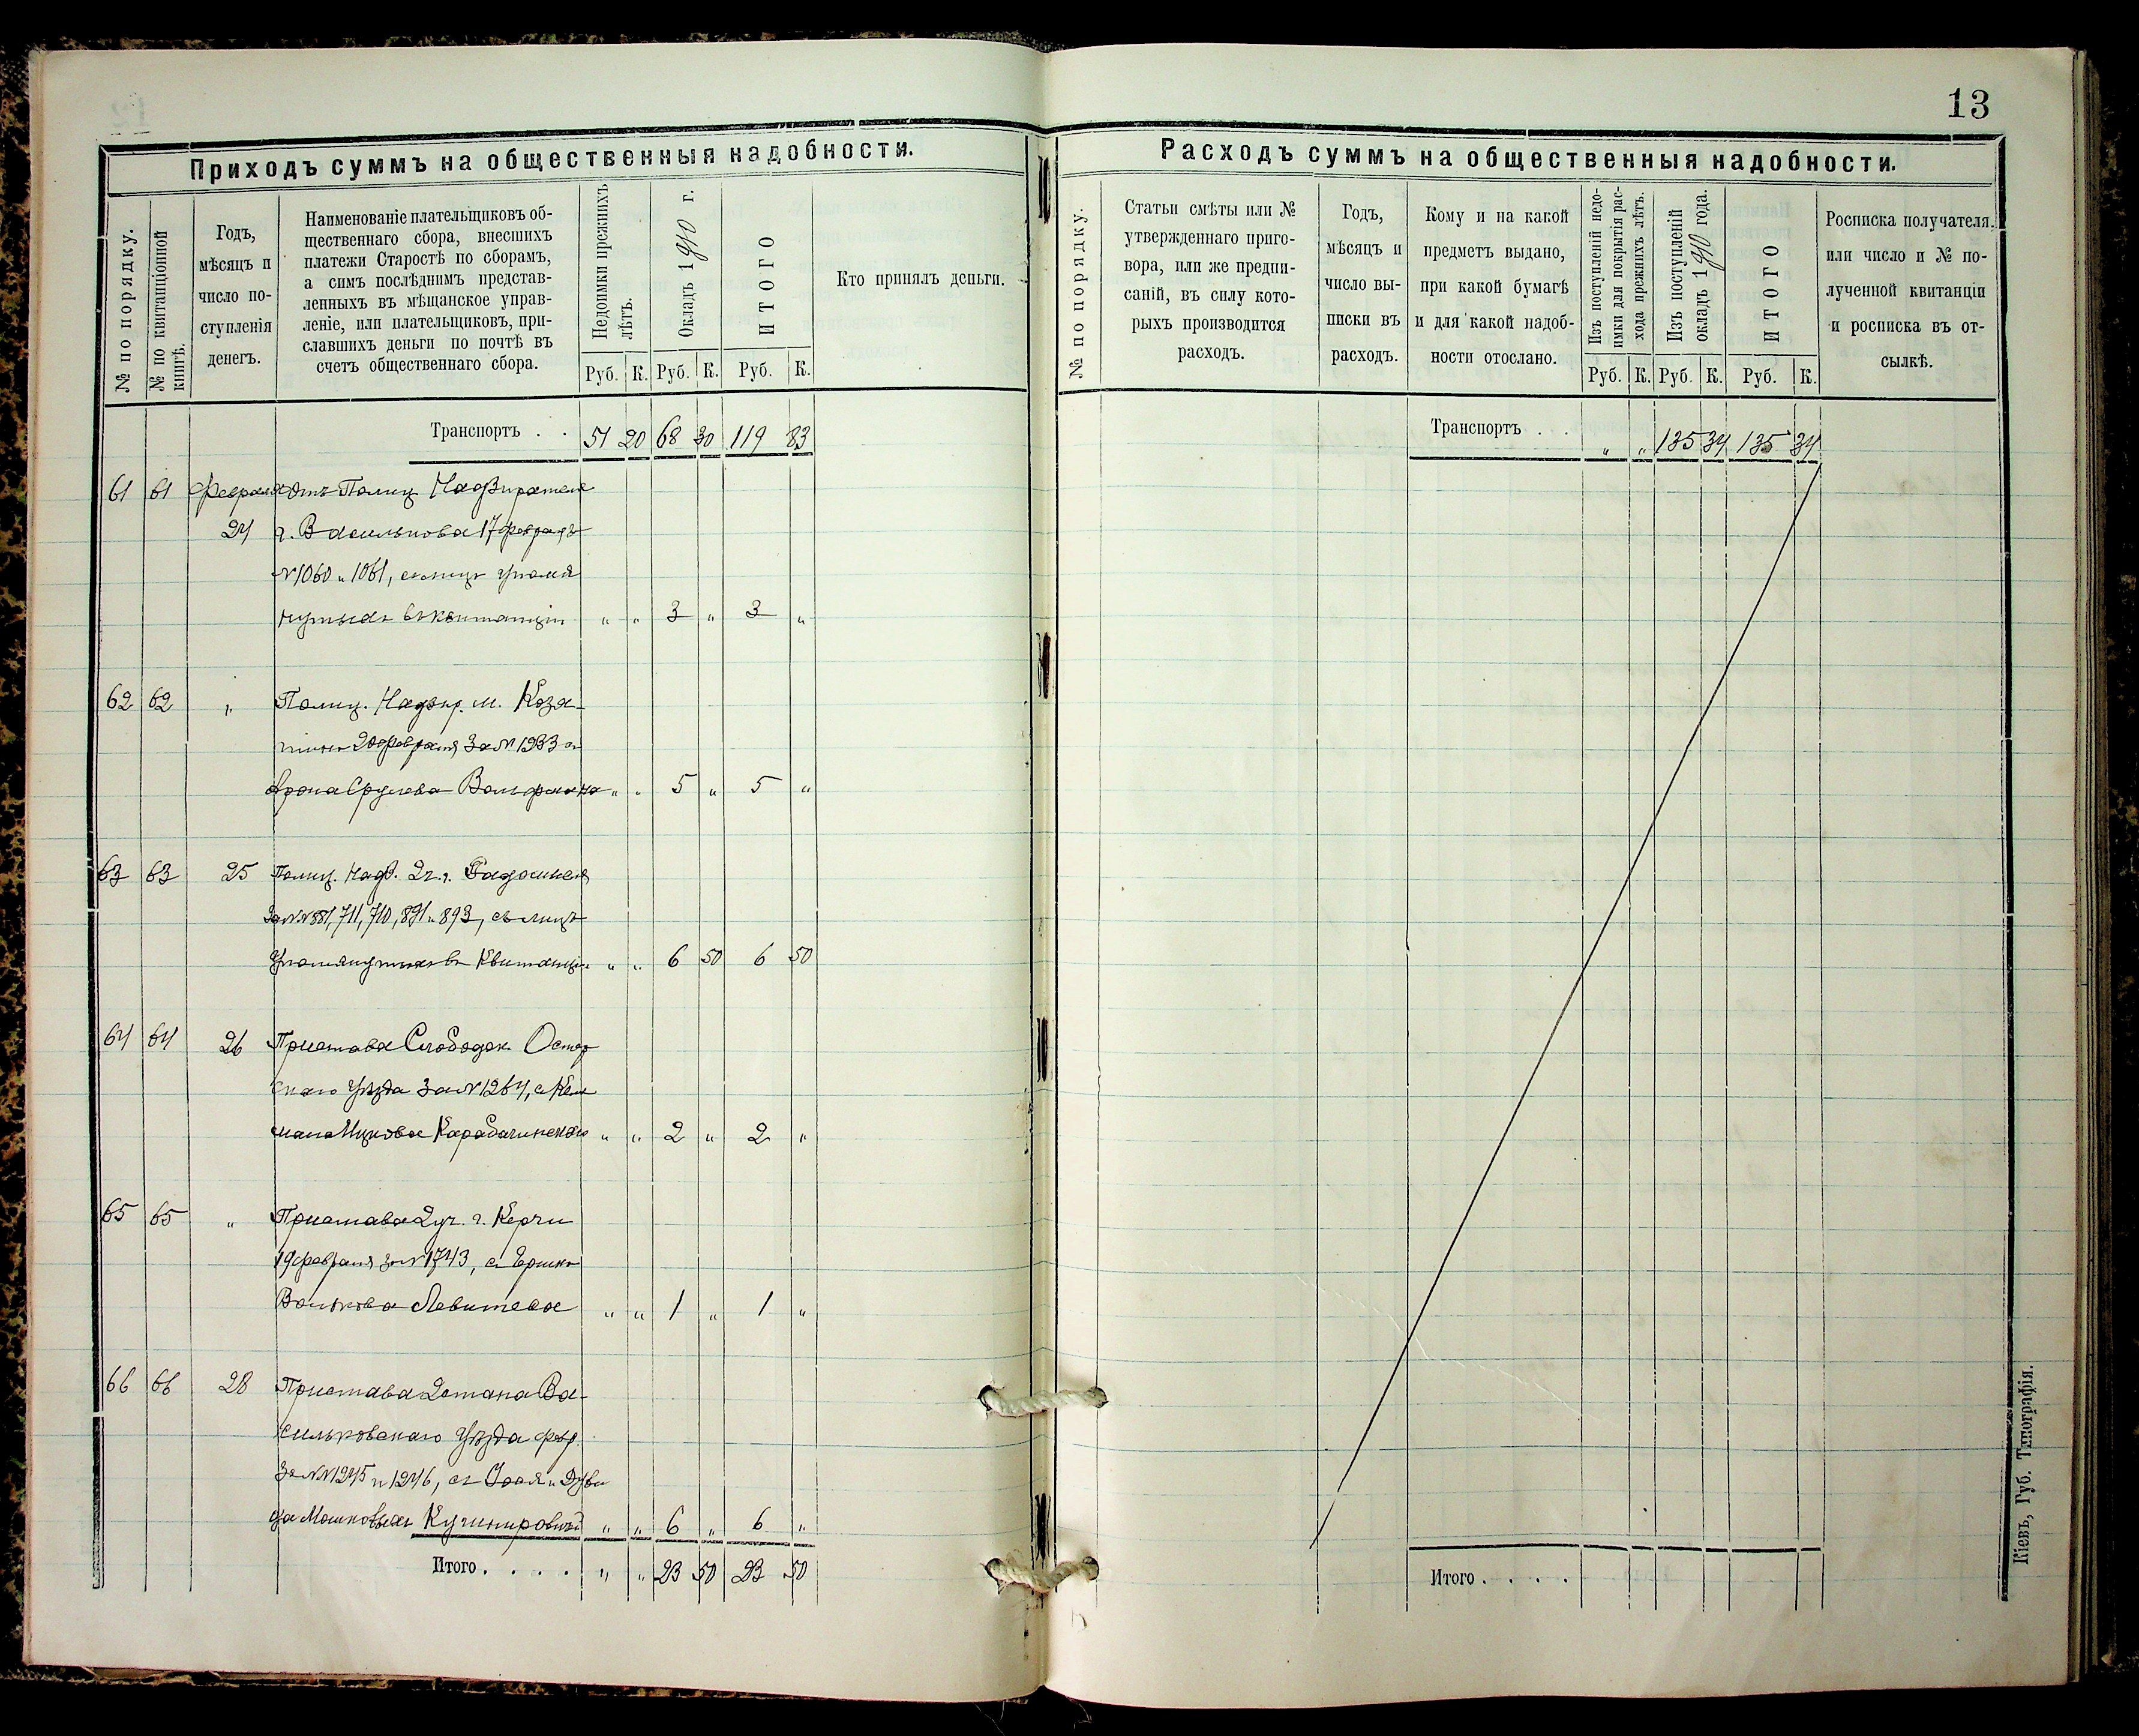 13
Приходъ суммъ на общественныя надобности.
№ по порядку.
№ по квитанціонной книгѣ.
Годъ,
мѣсяцъ и
число по-
ступленія
денегъ.
Наименованіе плательщиковъ об-
щественнаго сбора, внесшихъ
платежи Старостѣ по сборамъ,
а симъ послѣднимъ представ-
ленныхъ въ мѣщанское управ-
леніе, или плательщиковъ, при-
славшихъ деньги по почтѣ въ
счетъ общественнаго сбора.
Недоимки прежнихъ лѣтъ.
Окладъ 1910 г.
ИТОГО
Руб. К. Руб. К. Руб. К.
Кто принялъ деньги.
Транспортъ . . 51 20 68 30 119 83
61 61 Февраля Отъ Полиц. Надзирателя
24 г. Василькова 17 февраля
№ 1060 и 1061, съ лицъ упомя
нутыхъ въ квитанціи " " 3 " 3 "
62 62 " Полиц. Надзир. м. Каза-
тинъ 20 февраля за № 1933 съ
Арона Срулева Вольфмана " " 5 " 5 "
63 63 25 Полиц. Надз. 2 г.
за №№ 881, 711, 710, 891 и 893, съ лицъ
упомянутыхъ въ квитанціи " " 6 50 6 50
64 64 26 Пристава Слободск. Остер
скаго уѣзда за № 1264, съ Кель
мана Ицкова Карабачинскаго " " 2 " 2 "
65 65 " Пристава 2 уч. г. Керчи
19 февраля за № 1743, съ Ершко
Волькова Левитеса " " 1 " 1 "
66 66 28 Пристава 2 стана Ва-
сильковскаго уѣзда февр.
за №№ 1245 и 1246, съ и Дуви
да Мошковыхъ Кушнировичей " " 6 " 6 "
Итого . . . . " " 23 50 23 50
Расходъ суммъ на общественныя надобности.
№ по порядку.
Статьи смѣты или №
утвержденнаго приго-
вора, или же предпи-
саній, въ силу кото-
рыхъ производится
расходъ.
Годъ,
мѣсяцъ и
число вы-
писки въ
расходъ.
Кому и на какой
предметъ выдано,
при какой бумагѣ
и для какой надоб-
ности отослано.
Изъ поступленій недо-
имки для покрытія рас-
хода прежнихъ лѣтъ.
Изъ поступленій
окладъ 1910 года.
ИТОГО
Руб. К. Руб. К. Руб. К.
Росписка получателя.
или число и № по-
лученной квитанціи
и росписка въ от-
сылкѣ.
Транспортъ . . " " 135 34 135 34
Итого . . . .
Кіевъ, Губ. Типографія.